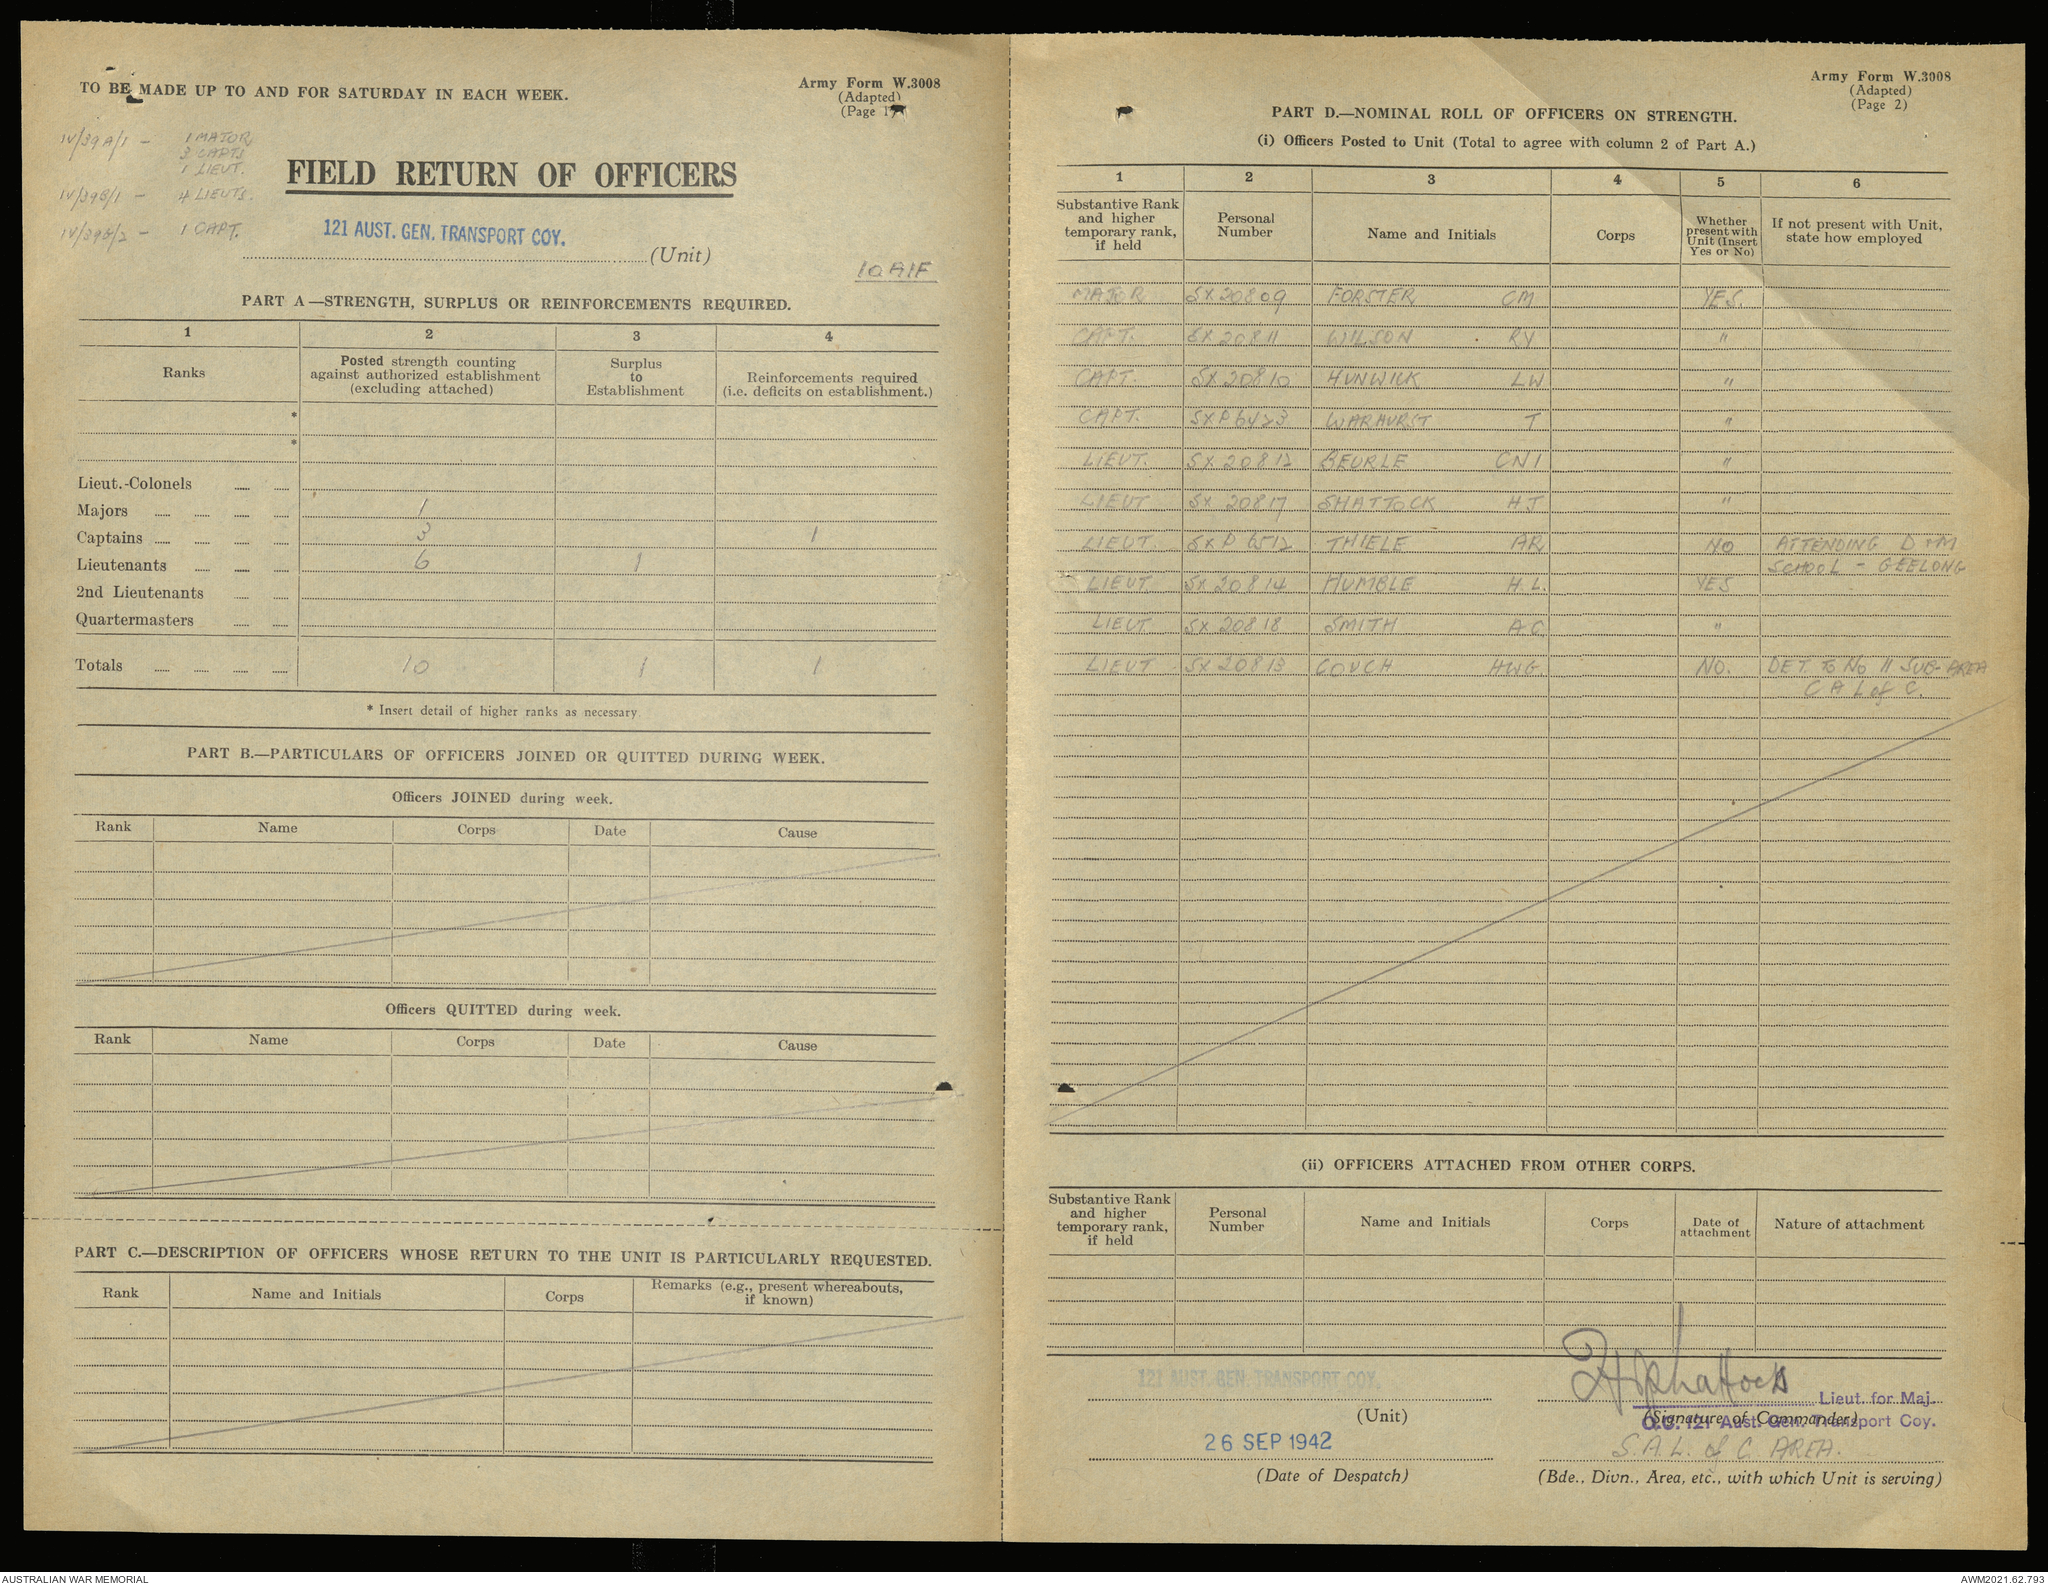 TO BE MADE UP TO AND FOR SATURDAY IN EACH WEEK.
Army Form W.3008
(Adapted)
(Page 1)
IV/39A/1 - 1 MAJOR
3 CAPTS
1 LIEUT.
IV/39B/1 - 4 LIEUTS.
IV/39B/2 - 1 CAPT.
FIELD RETURN OF OFFICERS
121 AUST. GEN. TRANSPORT COY.
(Unit)
10 AIF
PART A—STRENGTH, SURPLUS OR REINFORCEMENTS REQUIRED.
1 2 3 4
Ranks
Posted strength counting against authorized establishment (excluding attached)
Surplus to Establishment
Reinforcements required (i.e. deficits on establishment.)
*
*
Lieut.-Colonels
Majors 1
Captains 3 1
Lieutenants 6 1
2nd Lieutenants
Quartermasters
Totals 10 1 1
* Insert detail of higher ranks as necessary
PART B.—PARTICULARS OF OFFICERS JOINED OR QUITTED DURING WEEK.
Officers JOINED during week.
Rank Name Corps Date Cause
Officers QUITTED during week.
Rank Name Corps Date Cause
PART C.—DESCRIPTION OF OFFICERS WHOSE RETURN TO THE UNIT IS PARTICULARLY REQUESTED.
Rank Name and Initials Corps Remarks (e.g., present whereabouts, if known)
Army Form W.3008
(Adapted)
(Page 2)
PART D.—NOMINAL ROLL OF OFFICERS ON STRENGTH.
(i) Officers Posted to Unit (Total to agree with column 2 of Part A.)
1 2 3 4 5 6
Substantive Rank and higher temporary rank, if held
Personal Number
Name and Initials
Corps
Whether present with Unit (Insert Yes or No)
If not present with Unit, state how employed
MAJOR SX20809 FORSTER CM YES.
CAPT. SX20811 WILSON RV "
CAPT. SX20810 HUNWICK LW "
CAPT. SXP6423 WARHURST T "
LIEUT. SX20812 BEURLE CNI "
LIEUT SX 20817 SHATTOCK HJ "
LIEUT. SXP 6512 THIELE AR NO ATTENDING D & M
SCHOOL - GEELONG
LIEUT. SX20814 HUMBLE H.L. YES
LIEUT SX 20818 SMITH AC "
LIEUT SX20813 COUCH HWG. NO. DET. to No 11 SUB-AREA
C A L of C.
(ii) OFFICERS ATTACHED FROM OTHER CORPS.
Substantive Rank and higher temporary rank, if held
Personal Number
Name and Initials
Corps
Date of attachment
Nature of attachment
121 AUST. GEN. TRANSPORT COY.
(Unit)
26 SEP 1942
(Date of Despatch)
HJShattock
Lieut. for Maj.
(Signature of Commander)
O.C. 121 Aust. Gen. Transport Coy.
S.A.L. of C. AREA.
(Bde., Divn., Area, etc., with which Unit is serving)
AUSTRALIAN WAR MEMORIAL
AWM2021.62.793